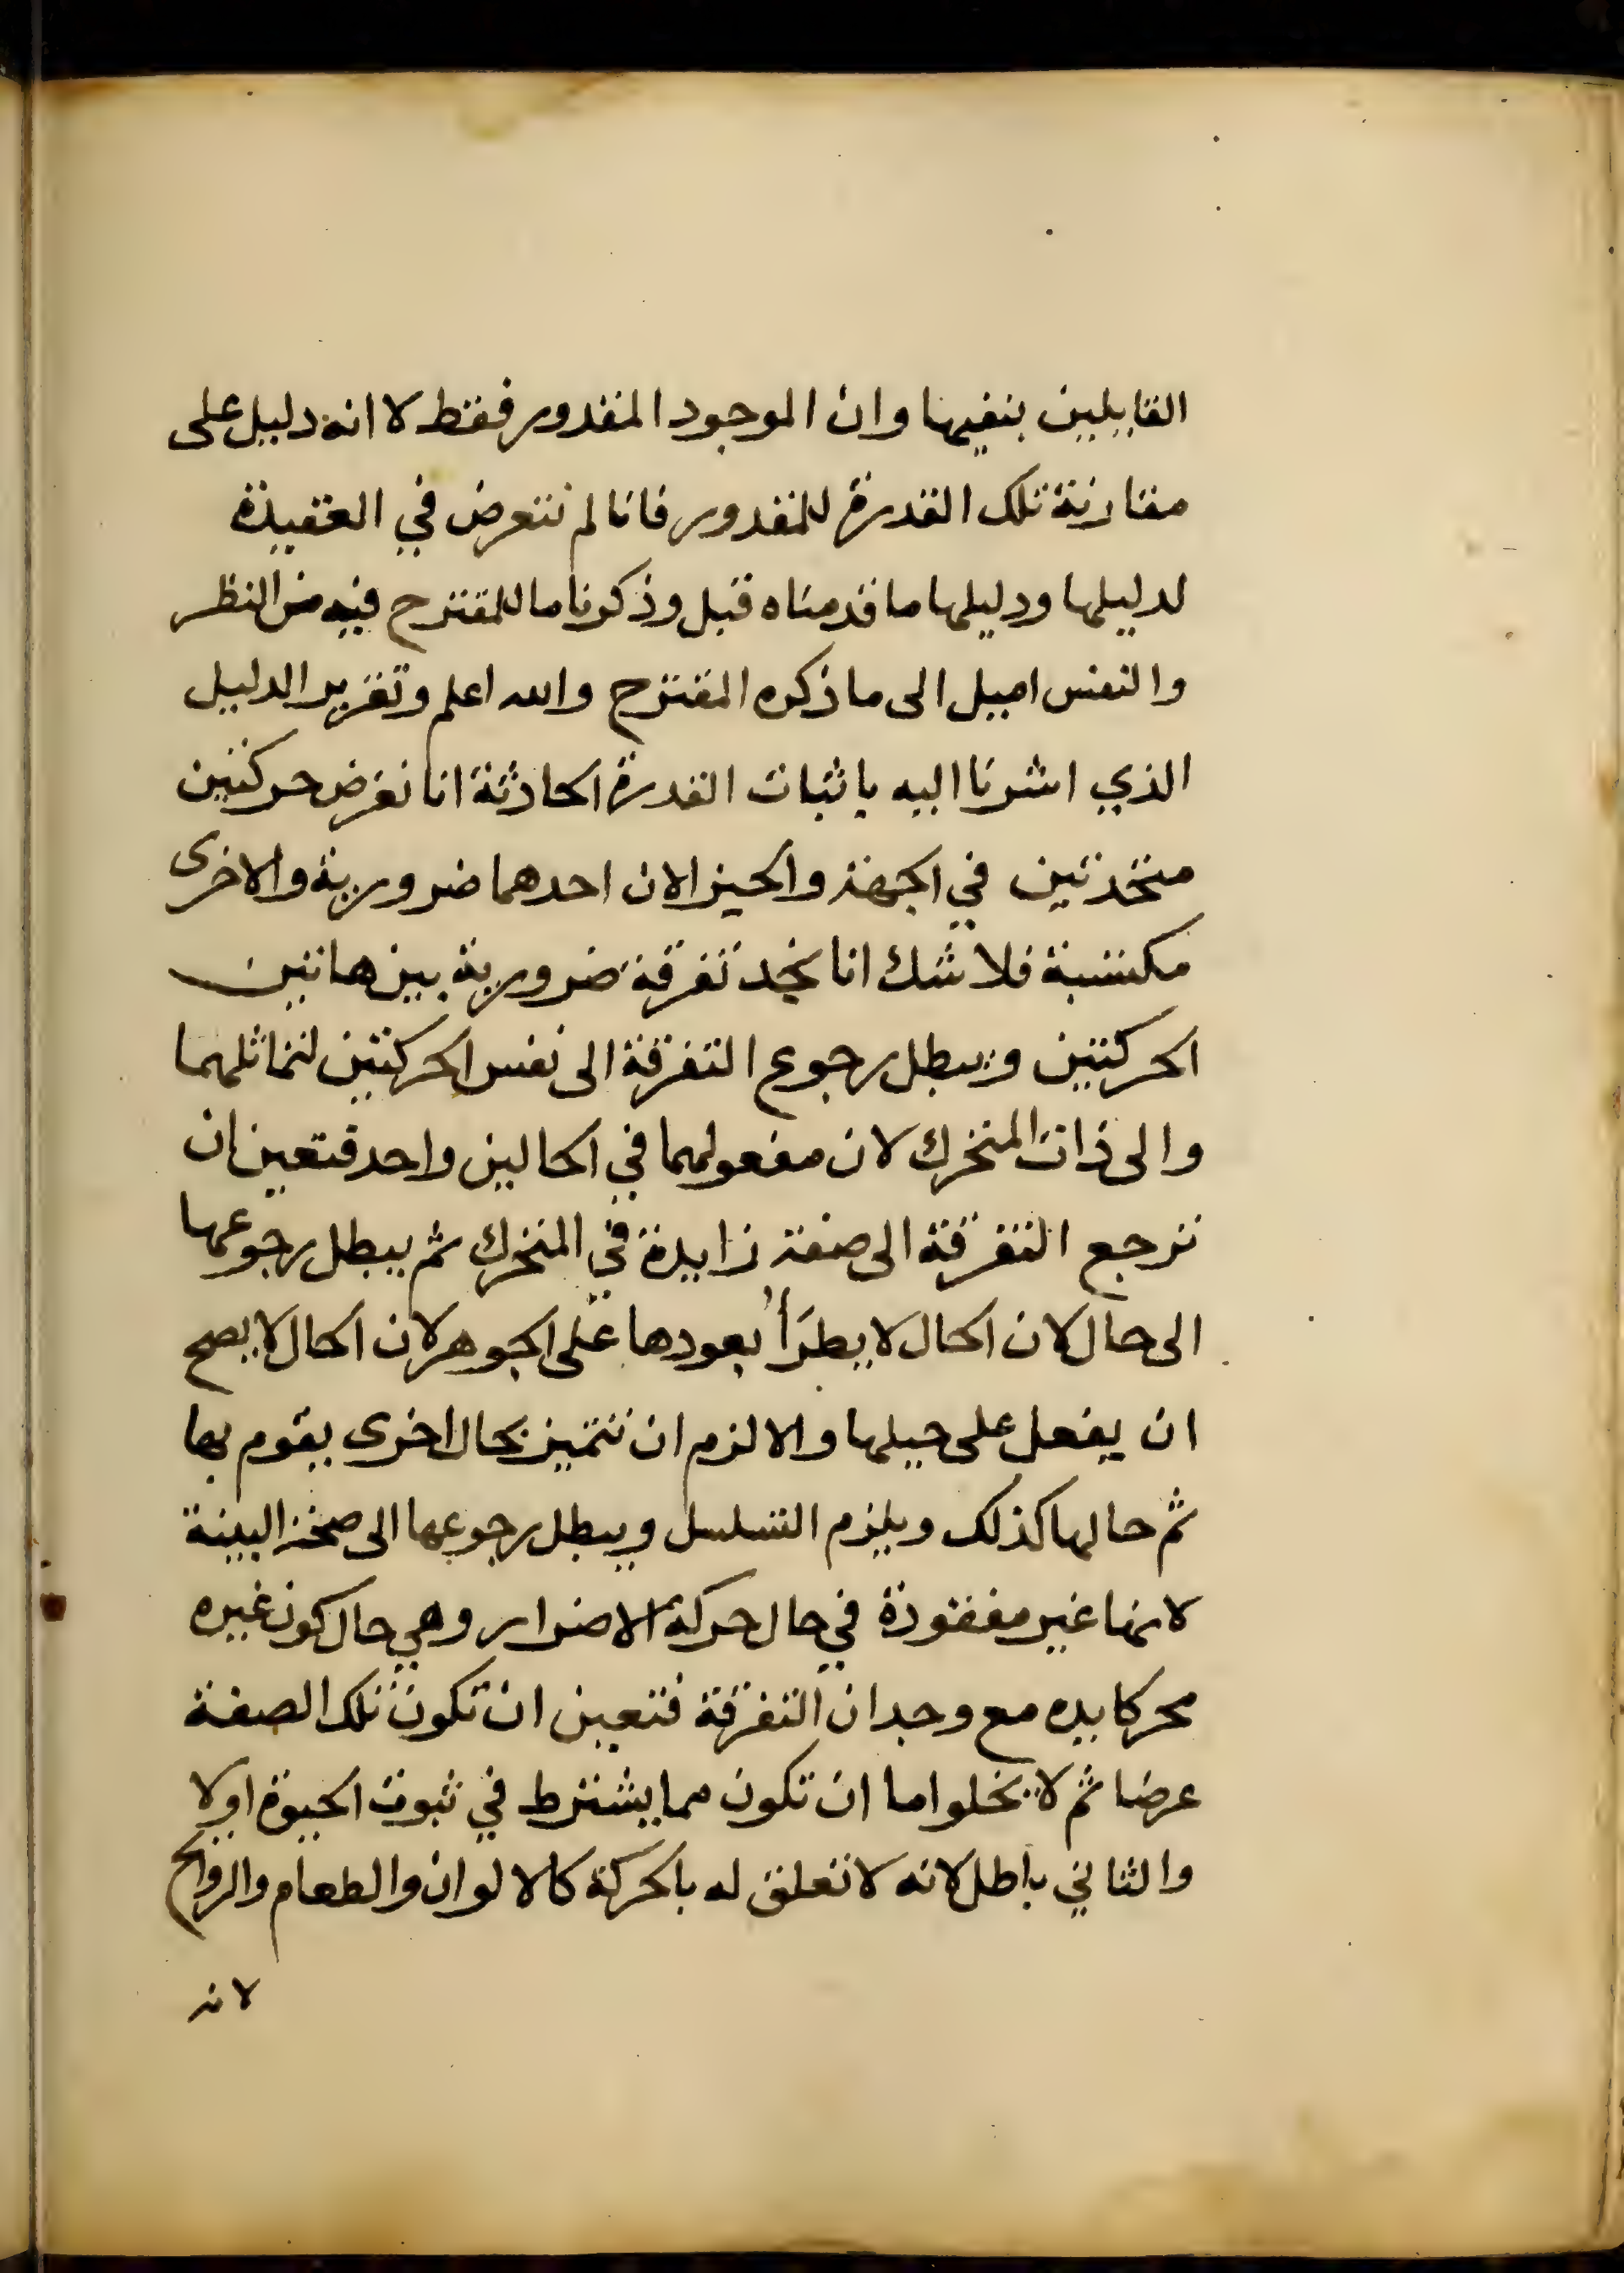 القايلين بنفيها وان الموجود المقدور فقط لا انه دليل على
مقارنة تلك القدرة للمقدور فانا لم نتعرض في العقيدة
لدليلها ودليلها ما قدمناه قبل وذكرنا ما للمقترح فيه من النظر
والنفس اميل الى ما ذكره المقترح والله اعلم وتقرير الدليل
الذي اشرنا اليه باثبات القدرة الحادثة انا نفرض حركتين
متحدتين في الجهة والحيز الا ان احدهما ضرورية والاخرى
مكتسبة فلا شك انا نجد تفرقة ضرورية بين هاتين
الحركتين ويبطل رجوع التفرقة الى نفس الحركتين لتماثلهما
والى ذات المتحرك لان مفعولهما في الحالين واحد فتعين ان
ترجع التفرقة الى صفة زايدة في المتحرك ثم يبطل رجوعها
الى حال لان الحال لا يطرأ بعودها على الجوهر لان الحال لا يصح
ان يفعل على حيلها والا لزم ان تتميز بحال اخرى يقوم بها
ثم حالها كذلك ويلزم التسلسل ويبطل رجوعها الى صحة البينة
لانها غير مفقودة في حال حركة الاضرار وهي حال كون غيره
محركا يده مع وجدان التفرقة فتعين ان تكون تلك الصفة
عرضا ثم لا يخلوا اما ان تكون مما يشترط في ثبوت الحيوة اولا
والثاني باطل لانه لا تعلق له بالحركة كالالوان والطعام والروايح
لانه